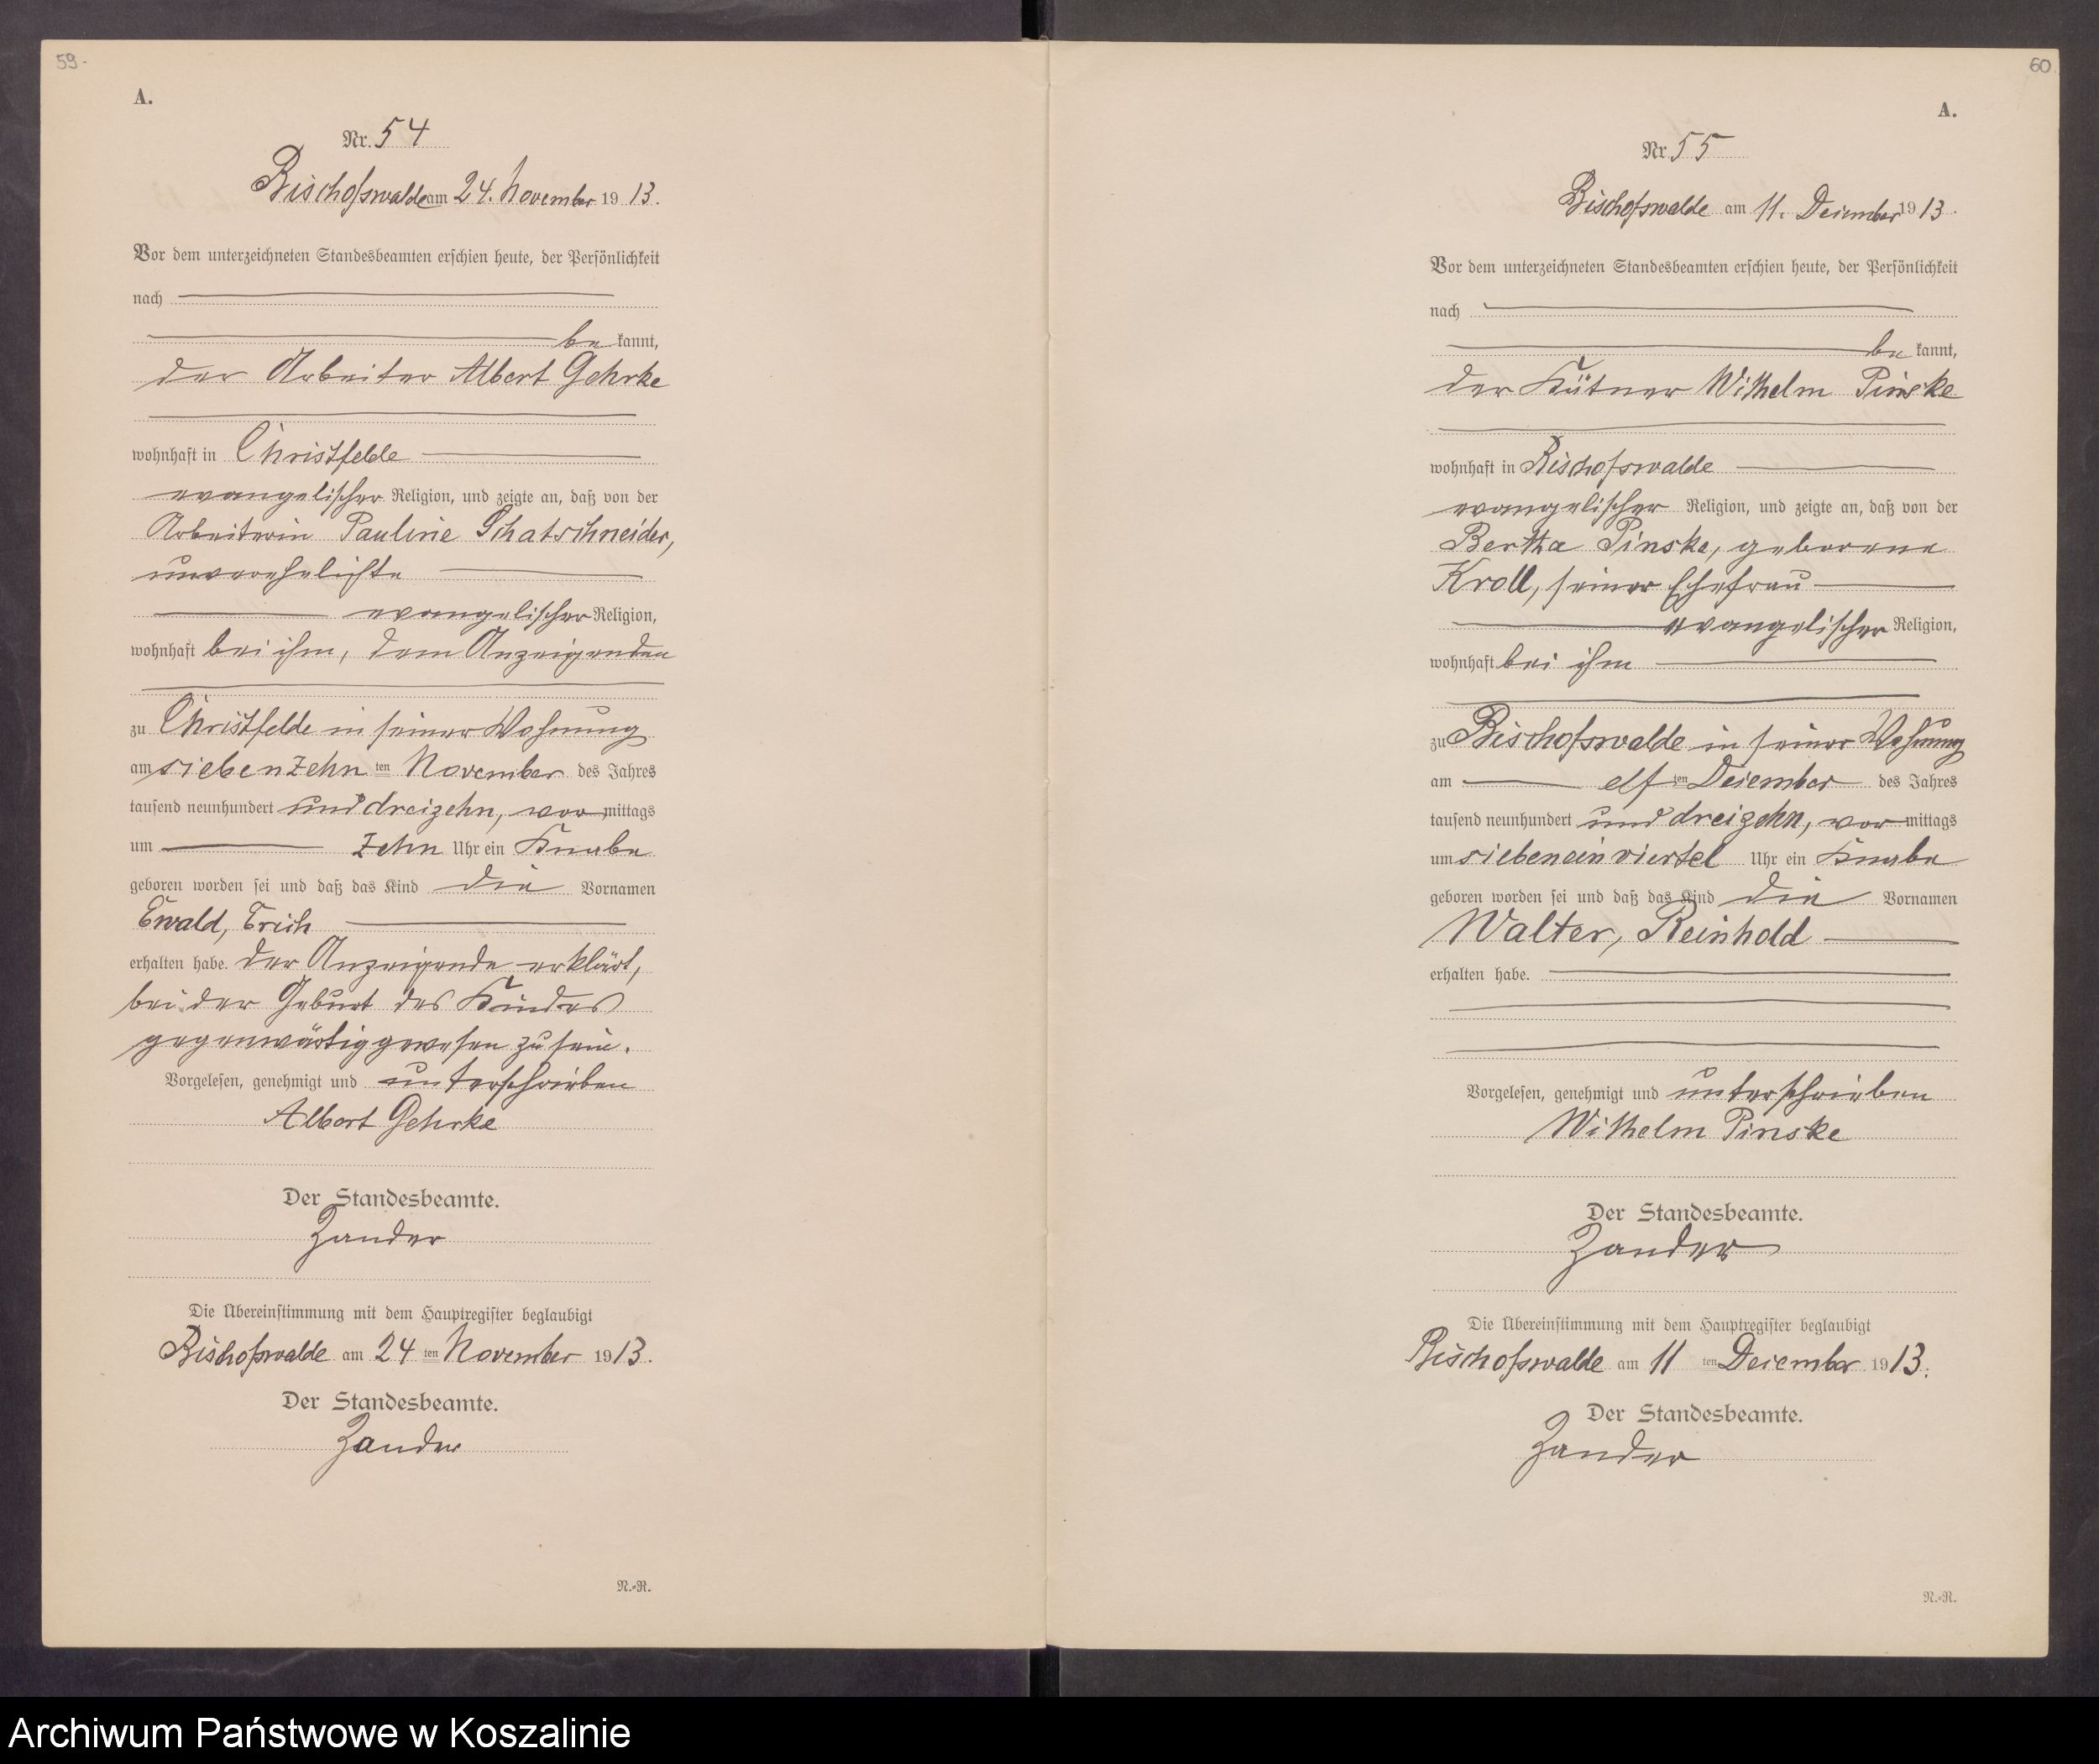 59.
A.
Nr. 54
Bischofswalde am 24. November 1913.
Vor dem unterzeichneten Standesbeamten erschien heute, der Persönlichkeit
nach
be kannt,
der Arbeiter Albert Gehrke
wohnhaft in Christfelde
evangelischer Religion, und zeigte an, daß von der
Arbeiterin Pauline Schatschneider,
unverehelichte
evangelischer Religion,
wohnhaft bei ihm, dem Anzeigenden
zu Christfelde in seiner Wohnung
am siebenzehn ten November des Jahres
tausend neunhundert und dreizehn, vor mittags
um zehn Uhr ein Knabe
geboren worden sei und daß das Kind die Vornamen
Ewald, Erich
erhalten habe. Der Anzeigende erklärt,
bei der Geburt des Kindes
gegenwärtig gewesen zu sein.
Vorgelesen, genehmigt und unterschrieben
Albert Gehrke
Der Standesbeamte.
Zander
Die Übereinstimmung mit dem Hauptregister beglaubigt
Bischofswalde am 24 ten November 1913.
Der Standesbeamte.
Zander
N.-R.
60
A.
Nr 55
Bischofswalde am 11. Dezember 1913.
Vor dem unterzeichneten Standesbeamten erschien heute, der Persönlichkeit
nach
be kannt,
der Kätner Wilhelm Pinske
wohnhaft in Bischofswalde
evangelischer Religion, und zeigte an, daß von der
Bertha Pinske, geborene
Kroll, seiner Ehefrau
evangelischer Religion,
wohnhaft bei ihm
zu Bischofswalde in seiner Wohnung
am elf ten Dezember des Jahres
tausend neunhundert und dreizehn, vor mittags
um siebeneinviertel Uhr ein Knabe
geboren worden sei und daß das Kind die Vornamen
Walter, Reinhold
erhalten habe.
Vorgelesen, genehmigt und unterschrieben
Wilhelm Pinske
Der Standesbeamte.
Zander
Die Übereinstimmung mit dem Hauptregister beglaubigt
Bischofswalde am 11 ten Dezember 1913.
Der Standesbeamte.
Zander
N.-R.
Archiwum Państwowe w Koszalinie